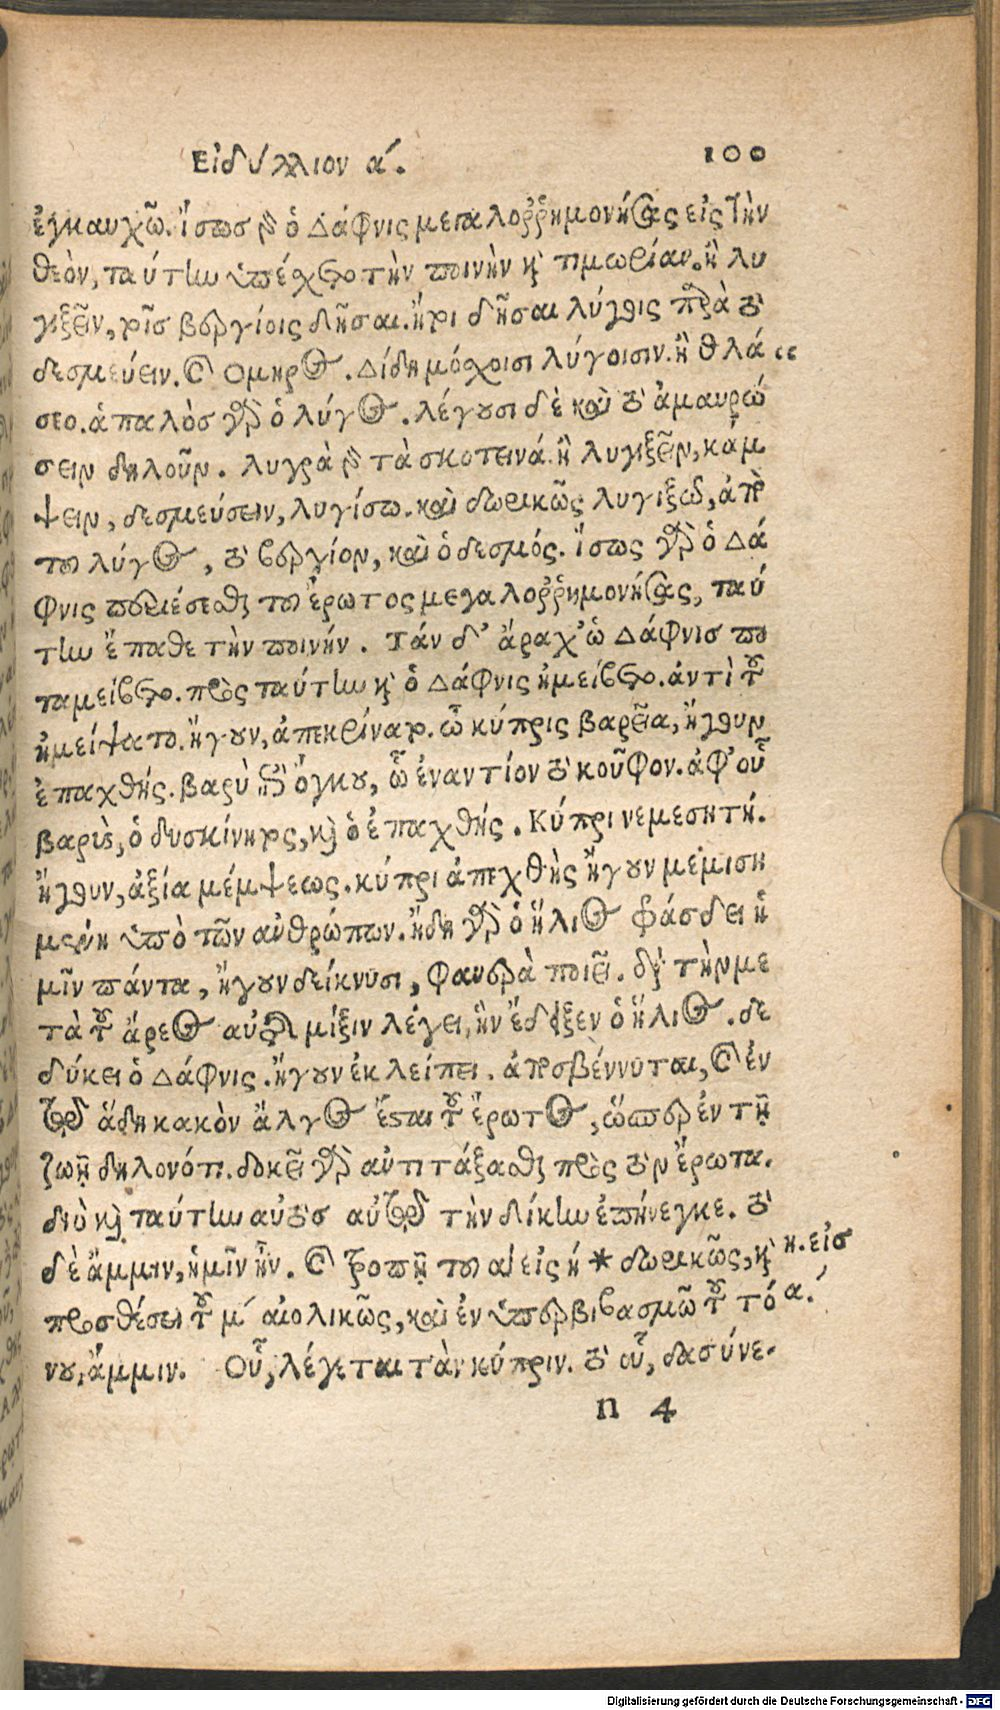 Εἰδύλλιον ά. 100
ἐγκαυχῶ. ἴσως γὸ ὁ Δάφνις μεγαλορῥημονήσας εἰς τὴν
θεὸν, ταύτην ὑπέχετο τὴν ποινὴν καὶ τιμωρίαν. ἢ λυ
γιξεῖν, τοῖς βεργίοις δῆσαι. ἤτοι δῆσαι λύγοις παρὰ τὸ
δεσμεύειν. καὶ Ομηρος. Δίδη μόσχοισι λύγοισιν. ἢ θλά
σεο. ἁπαλὸς γὰρ ὁ λύγος. λέγουσι δὲ καὶ τὸ ἀμαυρώ
σειν δηλοῦν. λυγρὰ γὸ τὰ σκοτεινά. ἢ λυγιξεῖν, κάμ
ψειν, δεσμεύσειν, λυγίσω. καὶ δωρικῶς λυγιξῶ, ἀπὸ
τοῦ λύγος, τὸ βεργίον, καὶ ὁ δεσμός. ἴσως γὰρ ὁ Δά
φνις περιέσεσθαι τοῦ ἔρωτος μεγαλορῥημονήσας, ταύ
την ἔπαθε τὴν ποινήν. Τάν δ' ἄραχ' ὡ Δάφνις πο
ταμείβετο. πρὸς ταύτην καὶ ὁ Δάφνις ἠμείβετο. ἀντὶ τοῦ
ἠμείψατο. ἤγουν, ἀπεκρίνατο. ὦ κύπρις βαρεῖα, ἤγουν
ἐπαχθής. βαρὺ ὄγκου, ὧ ἐναντίον τὸ κοῦφον. ἀφ' οὗ
βαρὺς, ὁ δυσκίνητος, καὶ ὁ ἐπαχθής. Κύπρι νεμεσητή.
ἤγουν, ἀξία μέμψεως. κύπρι ἀπεχθὴς ἤγουν μεμιση
μένη ὑπὸ τῶν ἀνθρώπων. ἤδη γὰρ ὁ ἥλιος φάσδει ἡ
μῖν πάντα, ἤγουν δείκνυσι, φανερὰ ποιεῖ. διὰ τὴν με
τὰ τοῦ ἄρεος αὐτῆς μίξιν λέγει, ἣν ἔδειξεν ὁ ἥλιος. δε
δύκει ὁ Δάφνις. ἤγουν ἐκλείπει. ἀποσβέννυται, καὶ ἐν
τῷ ἅδῃ κακὸν ἄλγος ἔσται τοῦ ἔρωτος, ὥσπερ ἐν τῇ
ζωῇ δηλονότι. δοκεῖ γὰρ ἀντιτάξασθαι πρὸς τὸν ἔρωτα.
διὸ καὶ ταύτην αὐτὸς αὐτῷ τὴν δίκην ἐπήνεγκε. τὸ
δὲ ἄμμιν, ἡμῖν ἦν. καὶ τροπῇ τοῦ α εἰς ή * δωρικῶς, καὶ η. εἰς
προσθέσει τοῦ μ´ αἰολικῶς, καὶ ἐν ὑπερβιβασμῶ τοῦ τό α.
νου, ἄμμιν. Οὗ, λέγεται τὰν κύπριν. τὸ οὗ, δασύνε-
n 4
Digitalisierung gefördert durch die Deutsche Forschungsgemeinschaft - DFG